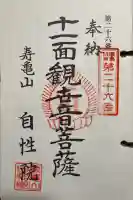 第二十六番
奉納
十一面観世音菩薩
寿亀山
自性院